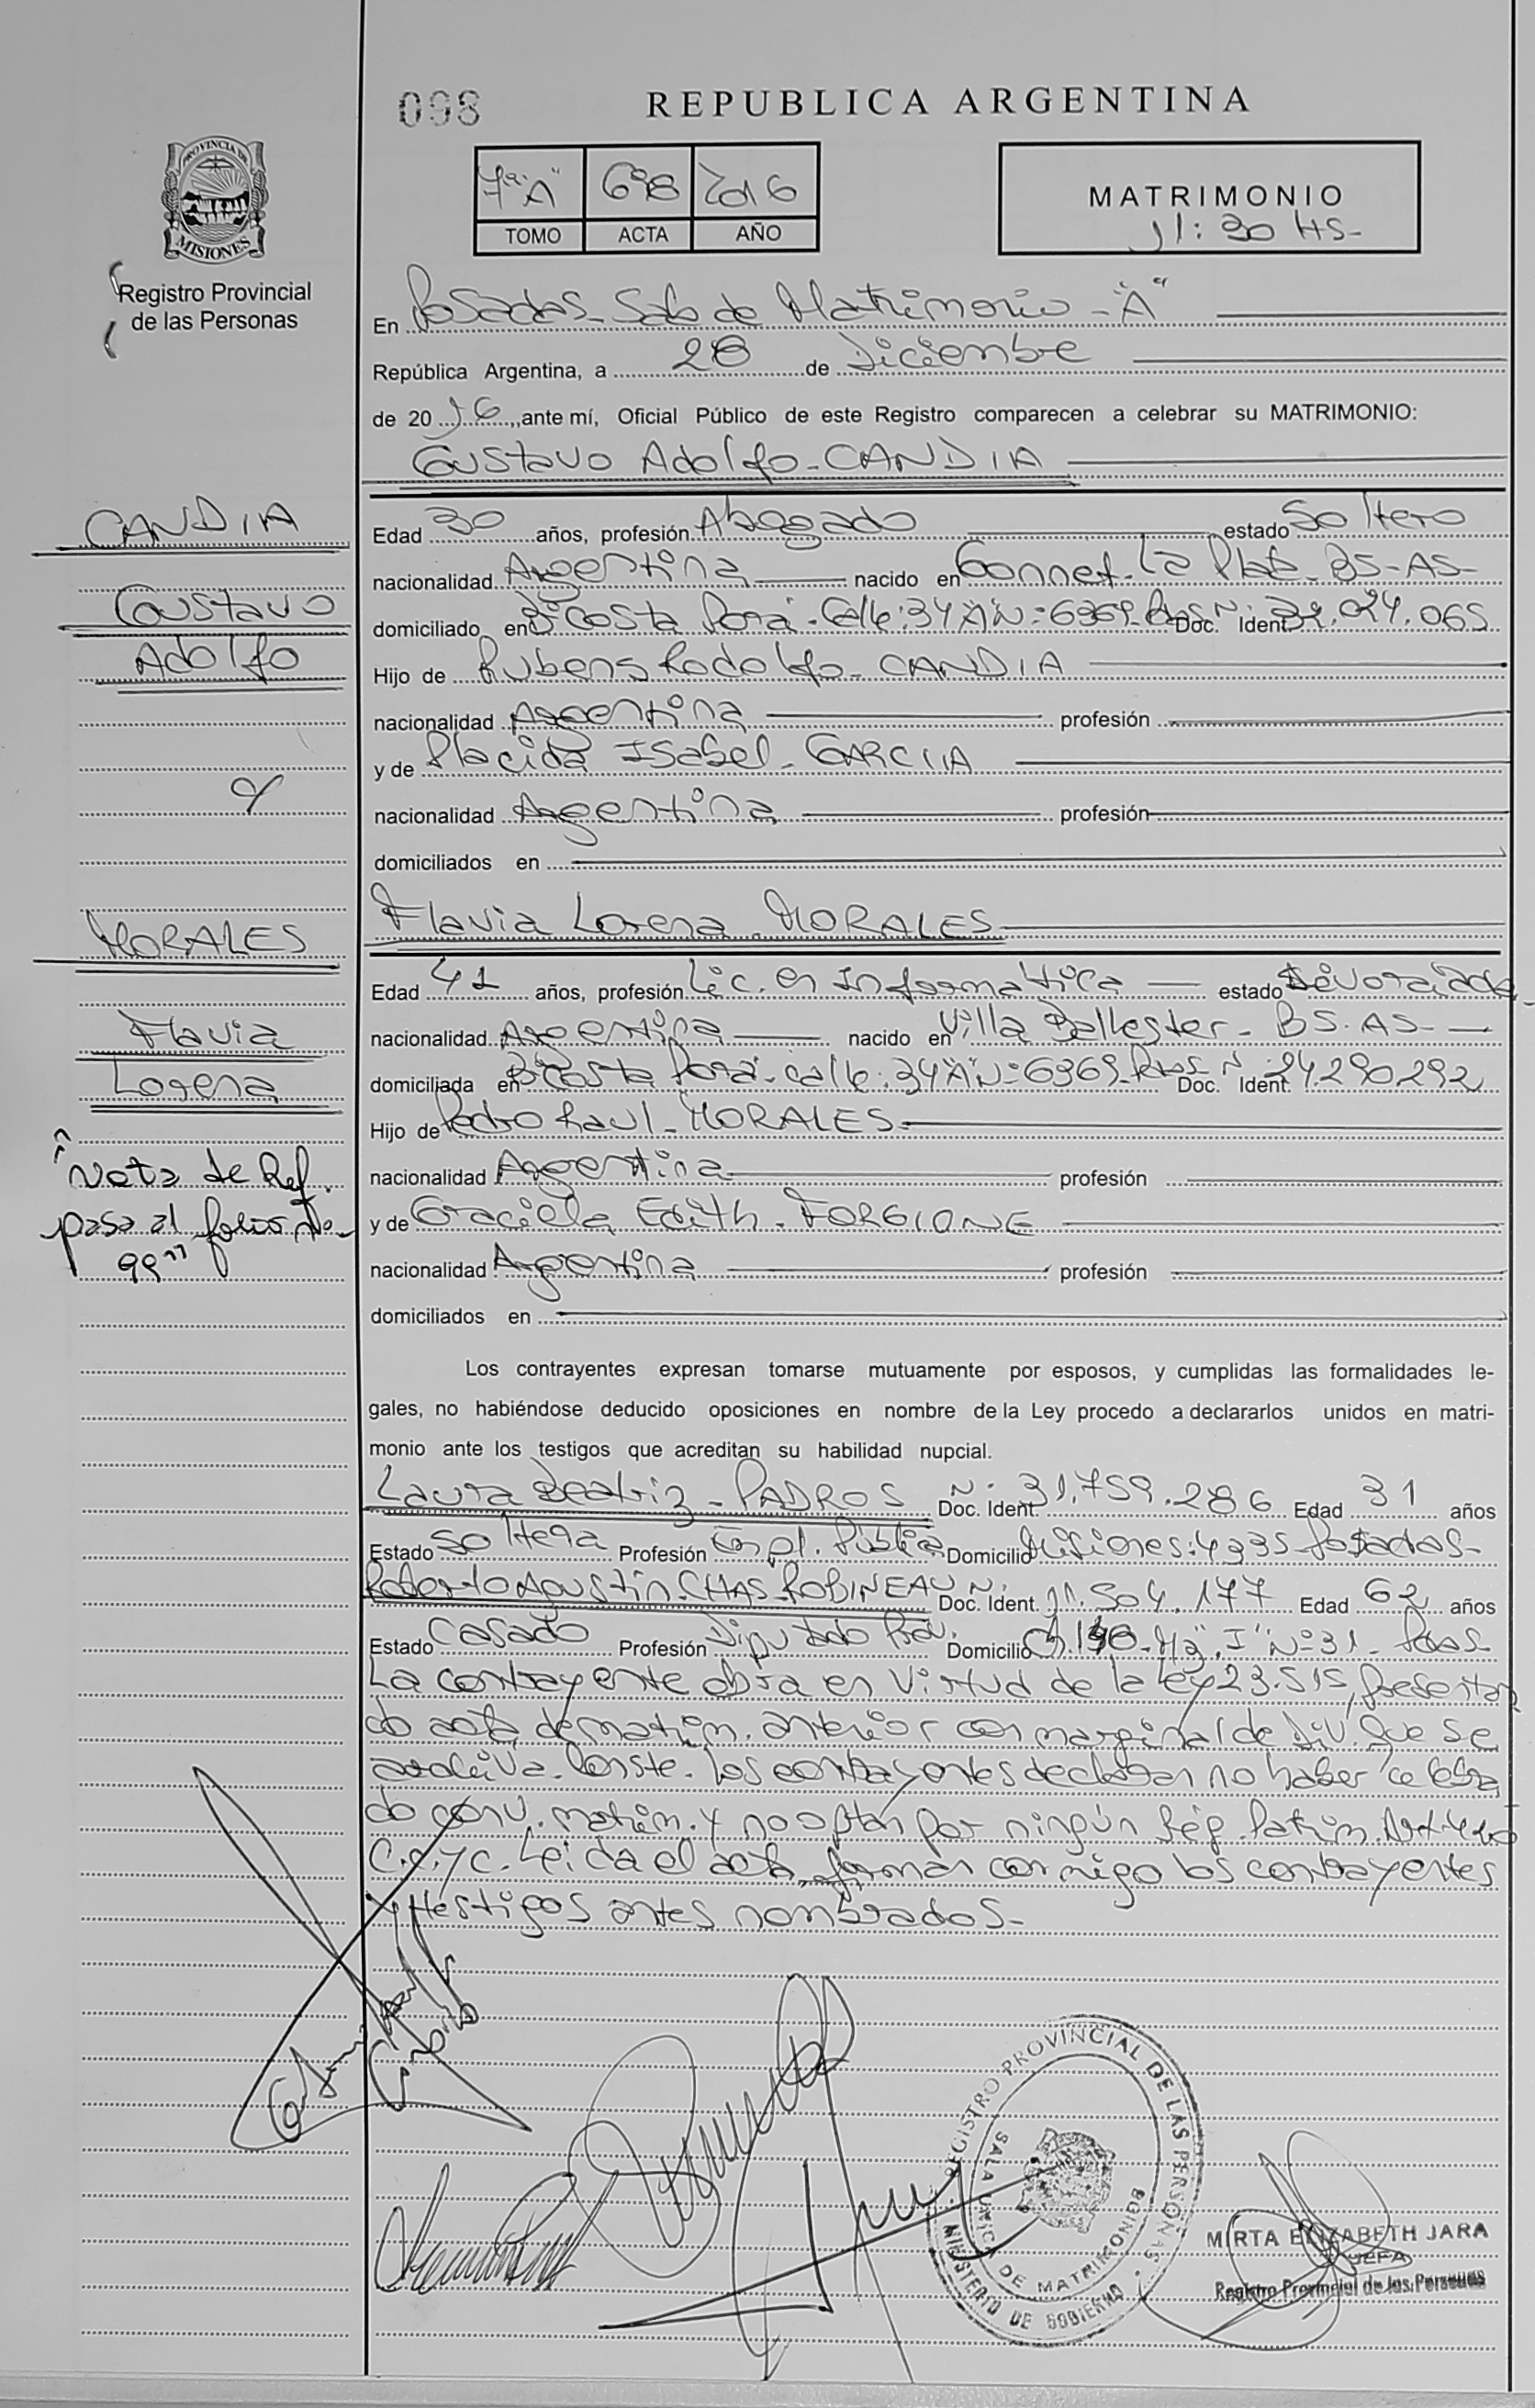 098
REPUBLICA ARGENTINA
PROVINCIA DE
MISIONES
Registro Provincial
de las Personas
7º "A" 698 2016
TOMO ACTA AÑO
MATRIMONIO
11:30 HS-
En Posadas - Sala de Matrimonio - "A"
República Argentina, a 28 de Diciembre
de 20 16, ante mí, Oficial Público de este Registro comparecen a celebrar su MATRIMONIO:
Gustavo Adolfo - CANDIA
CANDIA
Gustavo
Adolfo
y
MORALES
Flavia
Lorena
"Nota de Ref.
pasa al folio No
99"
Edad 30 años, profesión Abogado estado Soltero
nacionalidad Argentina nacido en Gonnet - La Plata - BS-AS-
domiciliado en Bº Costa Porá - Calle: 34 "A" Nº: 6369 - Pdas Doc. Ident. Nº
Hijo de Rubens Rodolfo - CANDIA
nacionalidad Argentina profesión
y de Placida Isabel - GARCIA
nacionalidad Argentina profesión
domiciliados en
Flavia Lorena - MORALES
Edad 41 años, profesión Lic. en Informática estado Divorciada
nacionalidad Argentina nacido en Villa Ballester - BS. AS-
domiciliada en Bº Costa Porá - calle: 34 "A" Nº: 6369 - Pdas Doc. Ident. Nº 24.290.292
Hijo de Pedro Raul - MORALES
nacionalidad Argentina profesión
y de Graciela Edith - FORGIONE
nacionalidad Argentina profesión
domiciliados en
Los contrayentes expresan tomarse mutuamente por esposos, y cumplidas las formalidades le-
gales, no habiéndose deducido oposiciones en nombre de la Ley procedo a declararlos unidos en matri-
monio ante los testigos que acreditan su habilidad nupcial.
Laura Beatriz - PADROS Doc. Ident. Nº 31.759.286 Edad 31 años
Estado Soltera Profesión Empl. Pública Domicilio Misiones: 4335 - Posadas-
Roberto Agustin - CHAS - ROBINEAU Doc. Ident. Nº 11.504.177 Edad 62 años
Estado Casado Profesión Diputado Prov. Domicilio Ch. Mz "I" Nº 31 - Pdas
La contrayente obra en virtud de la ley 23.515, presentan
do acta de matrim. anterior con marginal de Div. que se
archiva. Conste. Los contrayentes declaran no haber celebra
do conv. matrim. y no optan por ningún Rég. Patrim.
C.C. y C. Leida el acta, firman conmigo los contrayentes
y testigos antes nombrados-
REGISTRO PROVINCIAL DE LAS PERSONAS
SALA UNICA DE MATRIMONIOS
MINISTERIO DE GOBIERNO
MIRTA ELIZABETH JARA
JEFA
Registro Provincial de las Personas